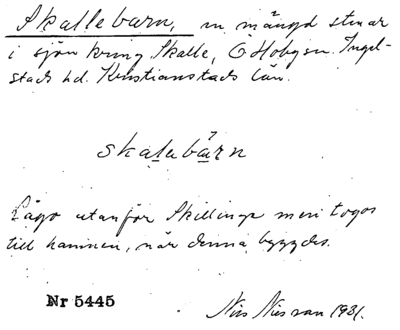 Skallebarn, en mängd stenar
i sjön kring Skalle, Ö Hoby sn. Ingel-
stads hd. Kristianstads län.
skalebärn
Lågo utanför Skillinge men togos
till hamnen, när denna byggdes.
Nr 5445
Nils Nilsson 1931.